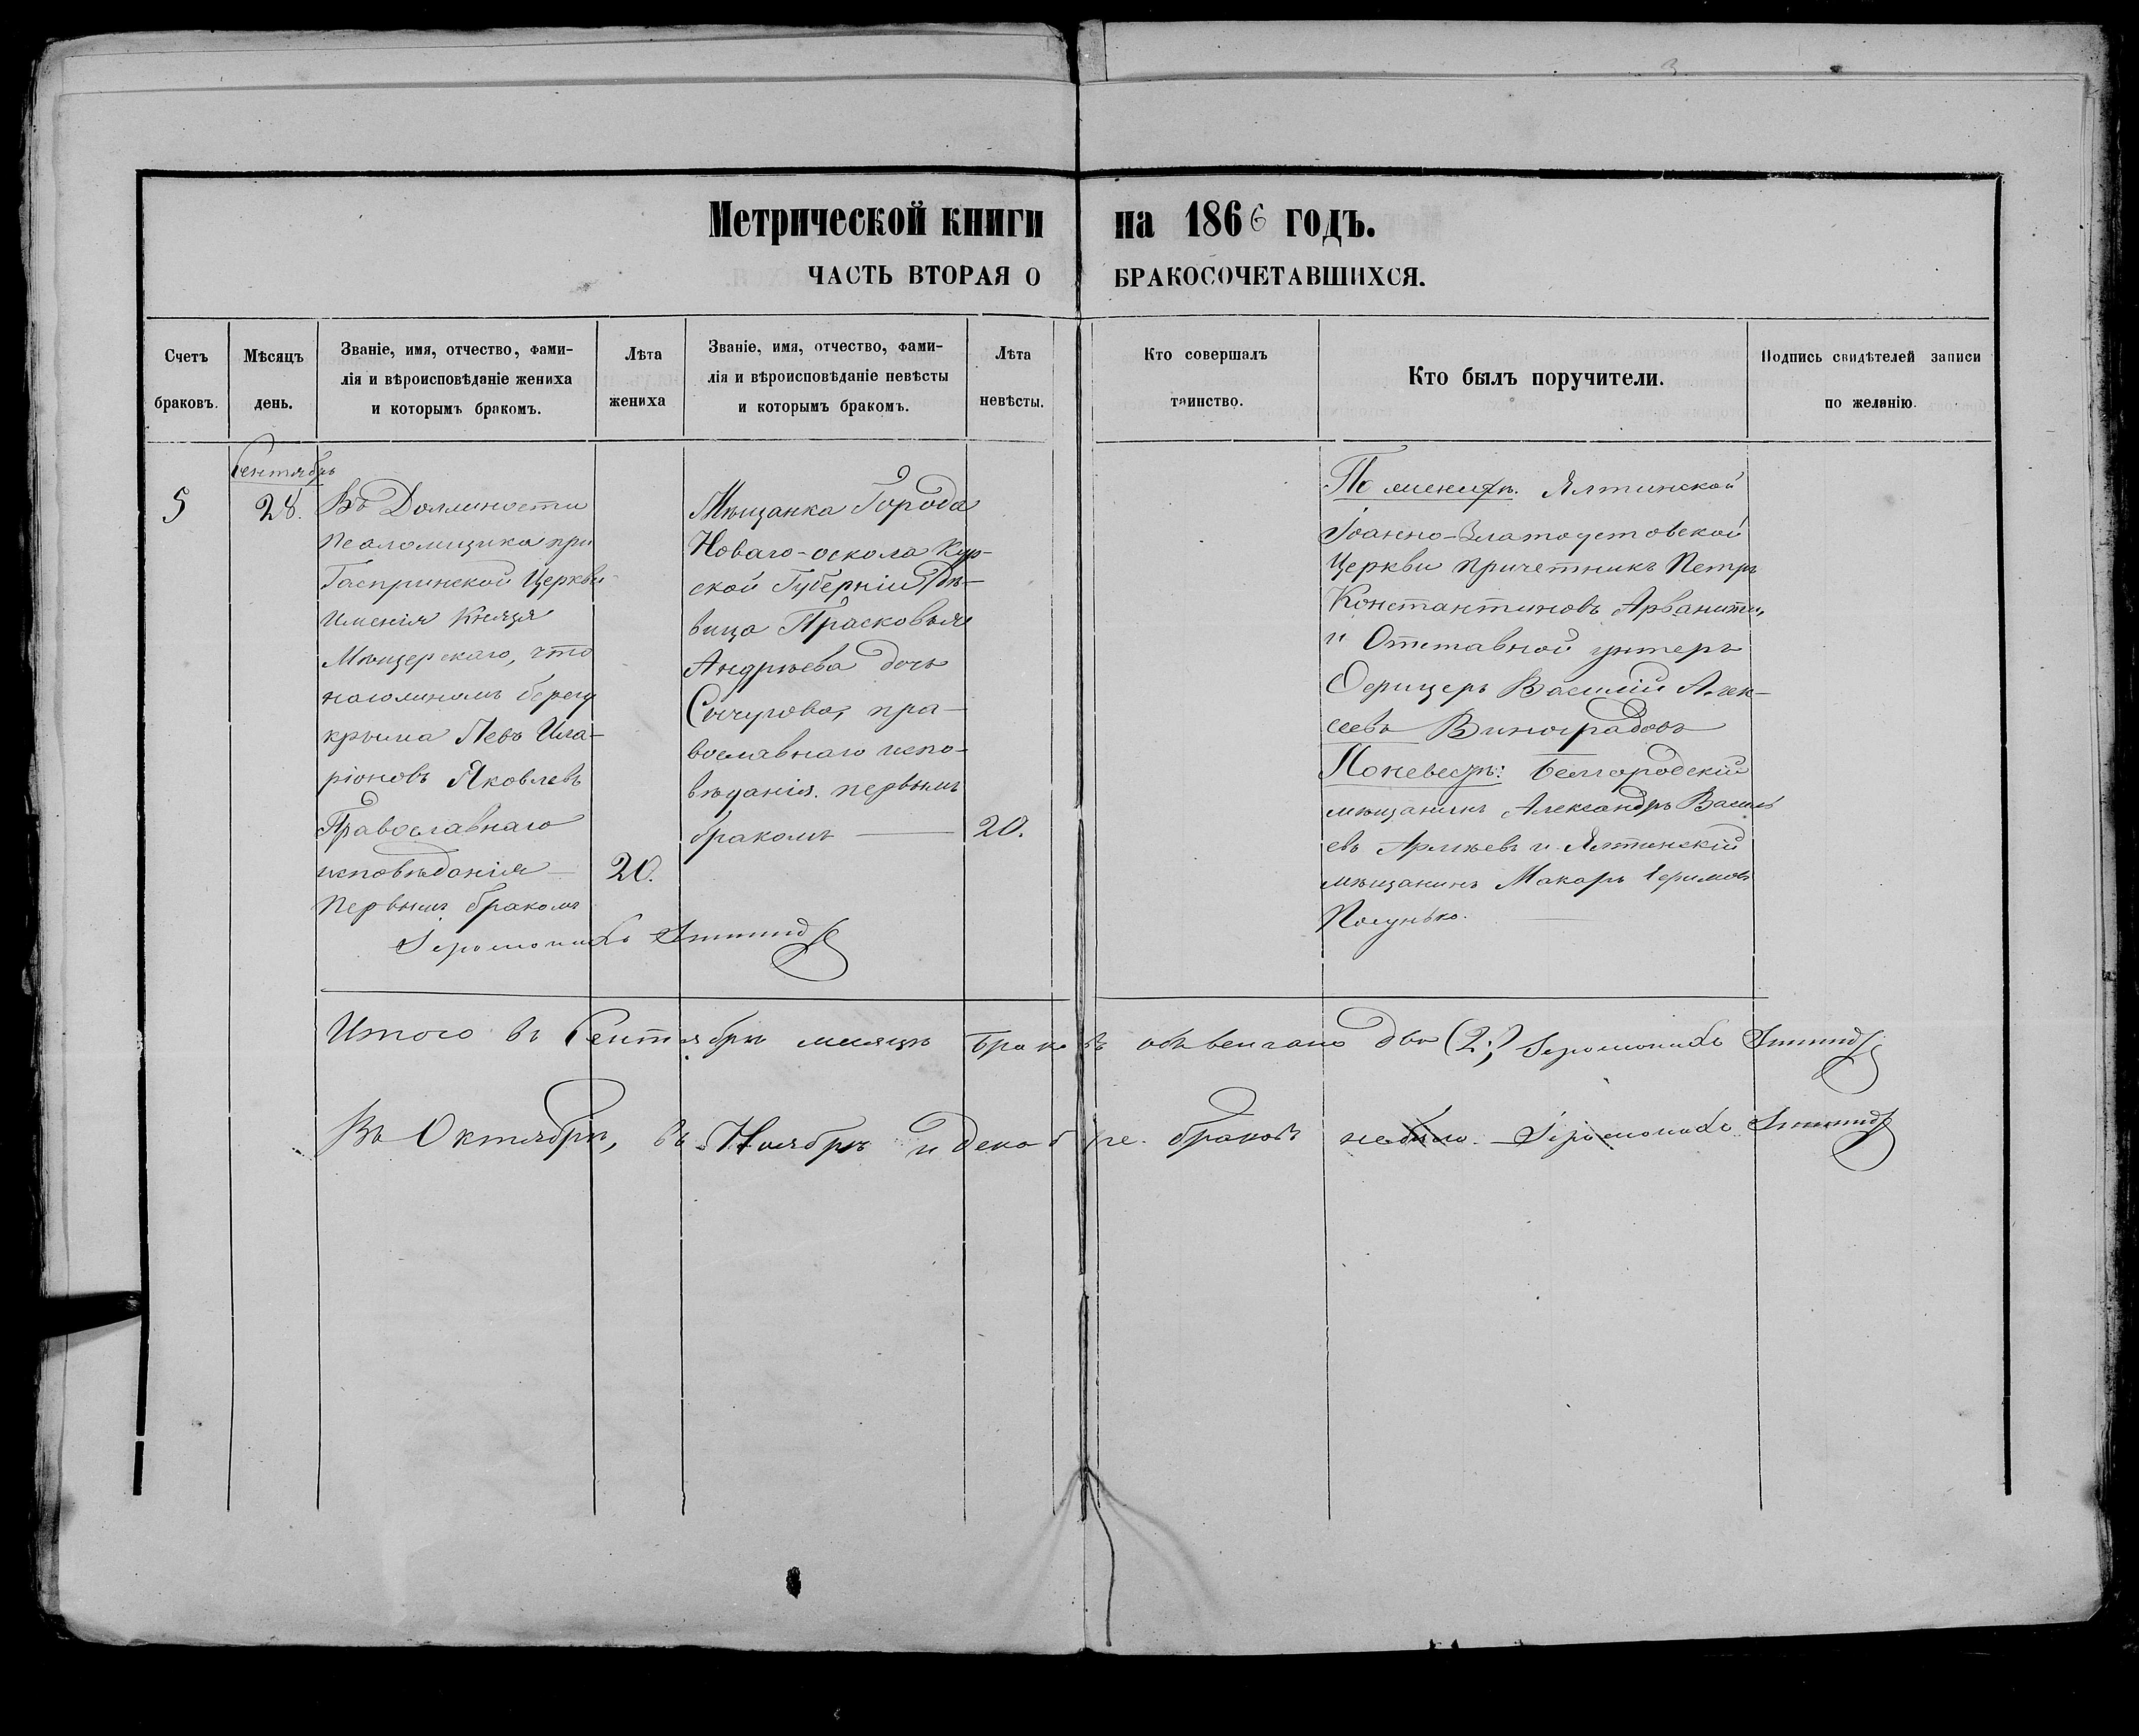 Метрической книги на 1866 годъ.
ЧАСТЬ ВТОРАЯ О БРАКОСОЧЕТАВШИХСЯ.
Счетъ
браковъ.
Мѣсяцъ
день.
Званіе, имя, отчество, фами-
лія и вѣроисповѣданіе жениха
и которымъ бракомъ.
Лѣта
жениха
Званіе, имя, отчество, фами-
лія и вѣроисповѣданіе невѣсты
и которымъ бракомъ.
Лѣта
невѣсты.
Кто совершалъ
таинство.
Кто былъ поручители.
Подпись свидѣтелей записи
по желанію.
Сентябрь
5
28.
Въ Должности
псаломщика при
Гаспринской Церкви
Имения Князя
Мѣщерскаго, что
на южномъ берегу
крыма Левъ Ила-
ріоновъ Яковлевъ
Православнаго
исповѣданія
Первымъ бракомъ
20.
Мѣщанка Города
Новаго-оскола Кур-
ской Губерніи Дѣ-
вица Прасковья
Андрѣева дочь
Сычугова, пра-
вославнаго испо-
вѣданія. первымъ
бракомъ
20.
По женихѣ. Ялтинской
Іоанно-Златоустовской
Церкви причетникъ Петръ
Константиновъ Арванити,
и Отставной унтеръ
Офицеръ Василій Алек-
сеевъ Виноградовъ
По невесте: Белгородскій
мѣщанинъ Александръ Василь
евъ и Ялтинскій
мѣщанинъ Макаръ
Іеромонахъ
Итого въ Сентябрѣ месяцѣ браковъ обвенчано два (2.) Іеромонахъ
Въ Октябрѣ, въ Ноябрѣ и декабре. браковъ не было. Іеромонахъ